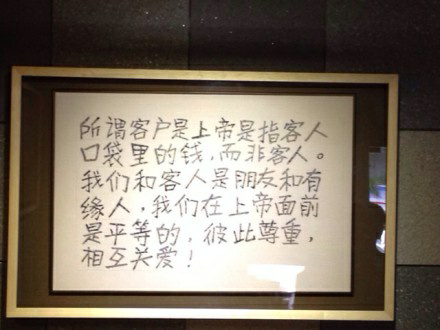 所谓客户是上帝是指客人
口袋里的钱,而非客人。
我们和客人是朋友和有
缘人,我们在上帝面前
是平等的,彼此尊重,
相互关爱!